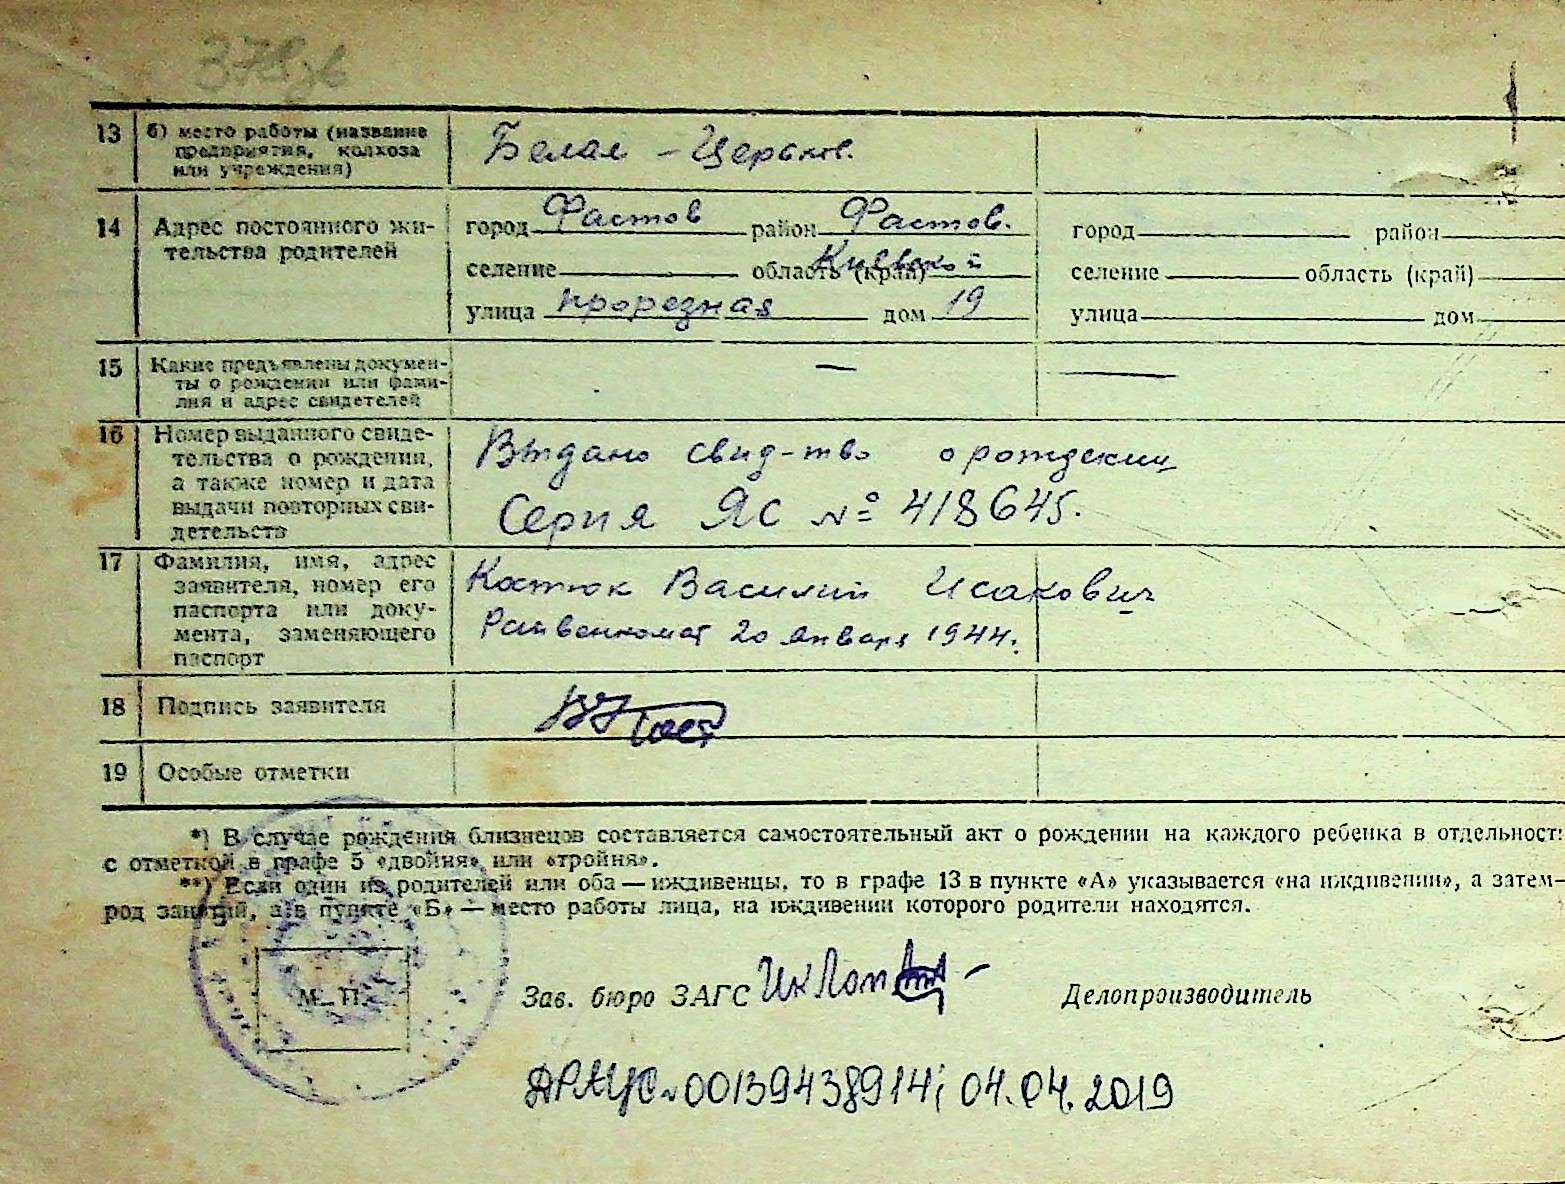 13 б) место работы (название
предприятия, колхоза
или учреждения)
Белая - Церковь.
14 Адрес постоянного жи-
тельства родителей
город Фастов район Фастов.
селение область (край) Киевской
улица прорезная дом 19
город район
селение область (край)
улица дом
15 Какие предъявлены докумен-
ты о рождении или фами-
лия и адрес свидетелей
— —
16 Номер выданного свиде-
тельства о рождении,
а также номер и дата
выдачи повторных сви-
детельств
Выдано свид-тво о рождении
Серия ЯС № 418645.
17 Фамилия, имя, адрес
заявителя, номер его
паспорта или доку-
мента, заменяющего
паспорт
Костюк Василий Исакович
Райвенкомат 20 января 1944.
18 Подпись заявителя
19 Особые отметки
*) В случае рождения близнецов составляется самостоятельный акт о рождении на каждого ребенка в отдельност
с отметкой в графе 5 «двойня» или «тройня».
**) Если один из родителей или оба — иждивенцы, то в графе 13 в пункте «А» указывается «на иждивении», а затем—
род занятий, а в пункте «Б» — место работы лица, на иждивении которого родители находятся.
М. П.
Зав. бюро ЗАГС
Делопроизводитель
ДРАЦС 00139438914; 04.04.2019